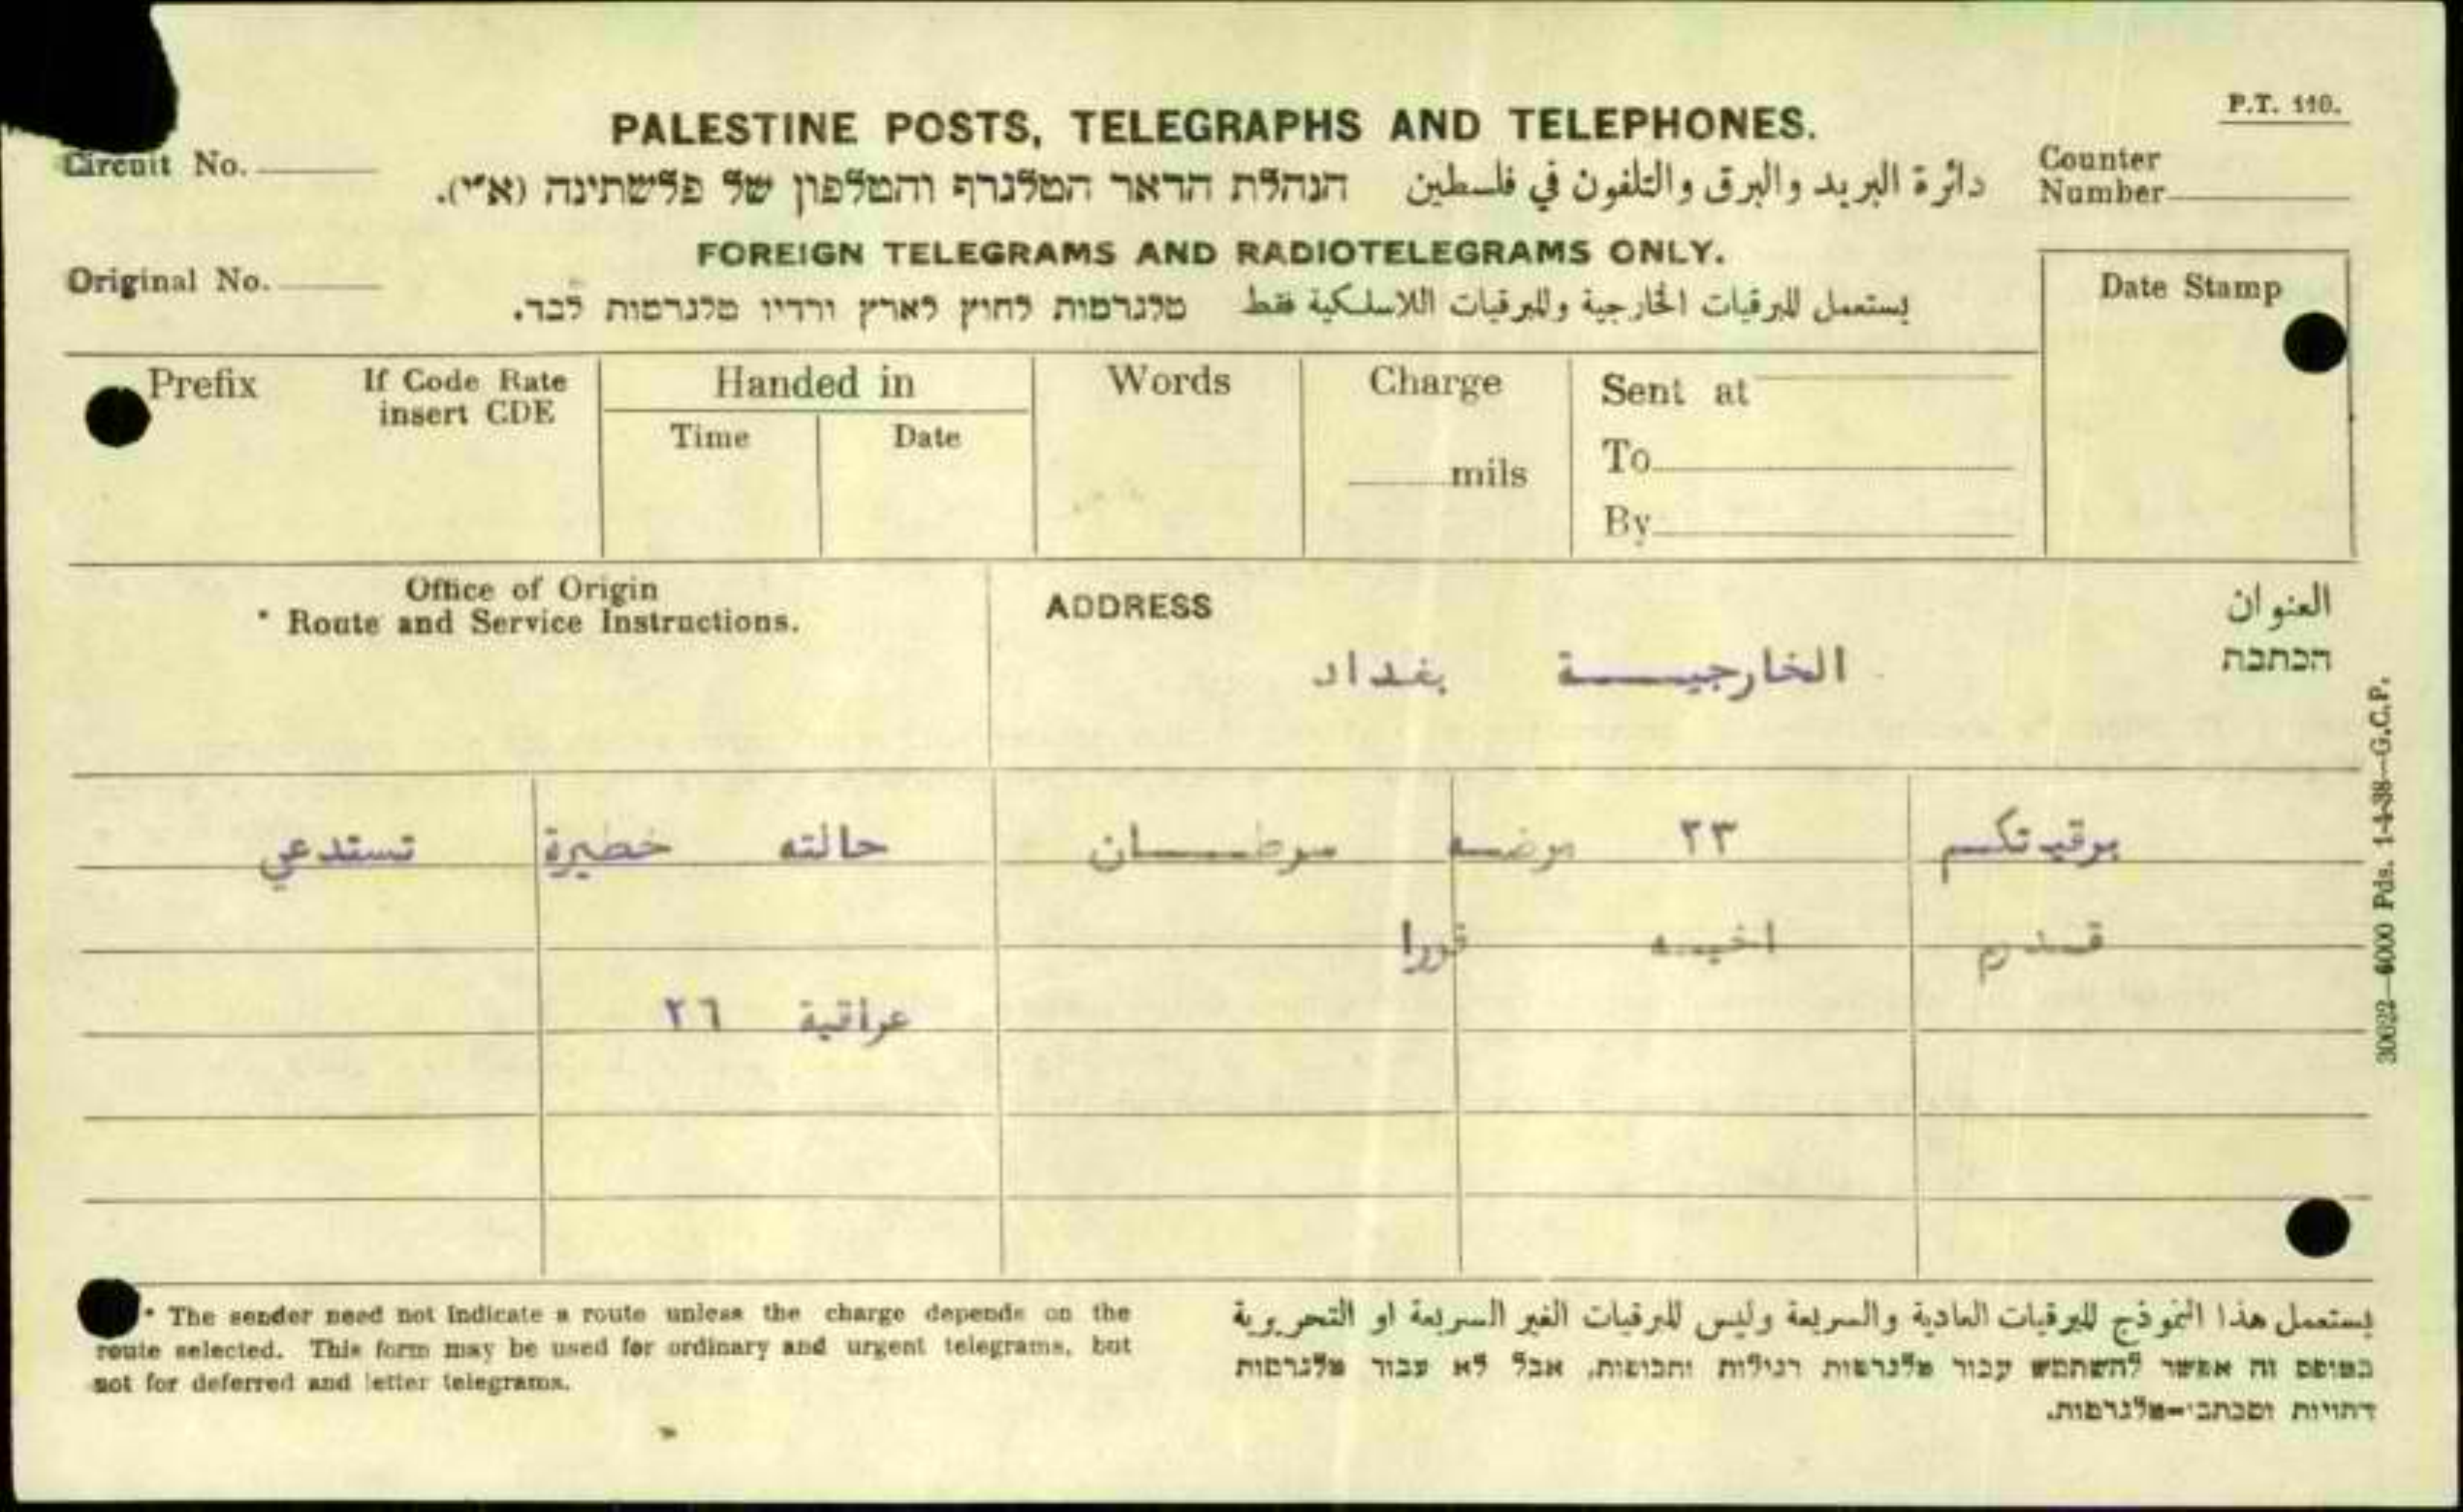 P.T. 110.
PALESTINE POSTS, TELEGRAPHS AND TELEPHONES.
Circuit No.
Counter Number
دائرة البريد والبرق والتلفون في فلسطين הנהלת הדאר המלגרף והטלפון של פלשתינה (א״י).
FOREIGN TELEGRAMS AND RADIOTELEGRAMS ONLY.
Original No.
Date Stamp
يستعمل للبرقيات الخارجية وللبرقيات اللاسلكية فقط טלגרמות לחוץ לארץ ורדיו טלגרמות לבד.
Prefix
If Code Rate insert CDE
Handed in
Time
Date
Words
Charge
mils
Sent at
To
By
Office of Origin
* Route and Service Instructions.
ADDRESS
العنوان
הכתבת
الخارجيـــــة بغداد
برقيتكم ٢٣ مرضه سرطـــان حالته خطيرة تستدعي
قدوم اخيه فورا
عراقية ٢٦
30622—6000 Pds. 1-4-38—G.C.P.
* The sender need not indicate a route unless the charge depends on the
route selected. This form may be used for ordinary and urgent telegrams, but
not for deferred and letter telegrams.
يستعمل هذا النموذج للبرقيات العادية والسريعة وليس للبرقيات الغير السريعة او التحريرية
בטופס זה אפשר להשתמש עבור טלגרמות רגילות ותכופות, אבל לא עבור טלגרמות
דחויות ומכתבי-טלגרמות.